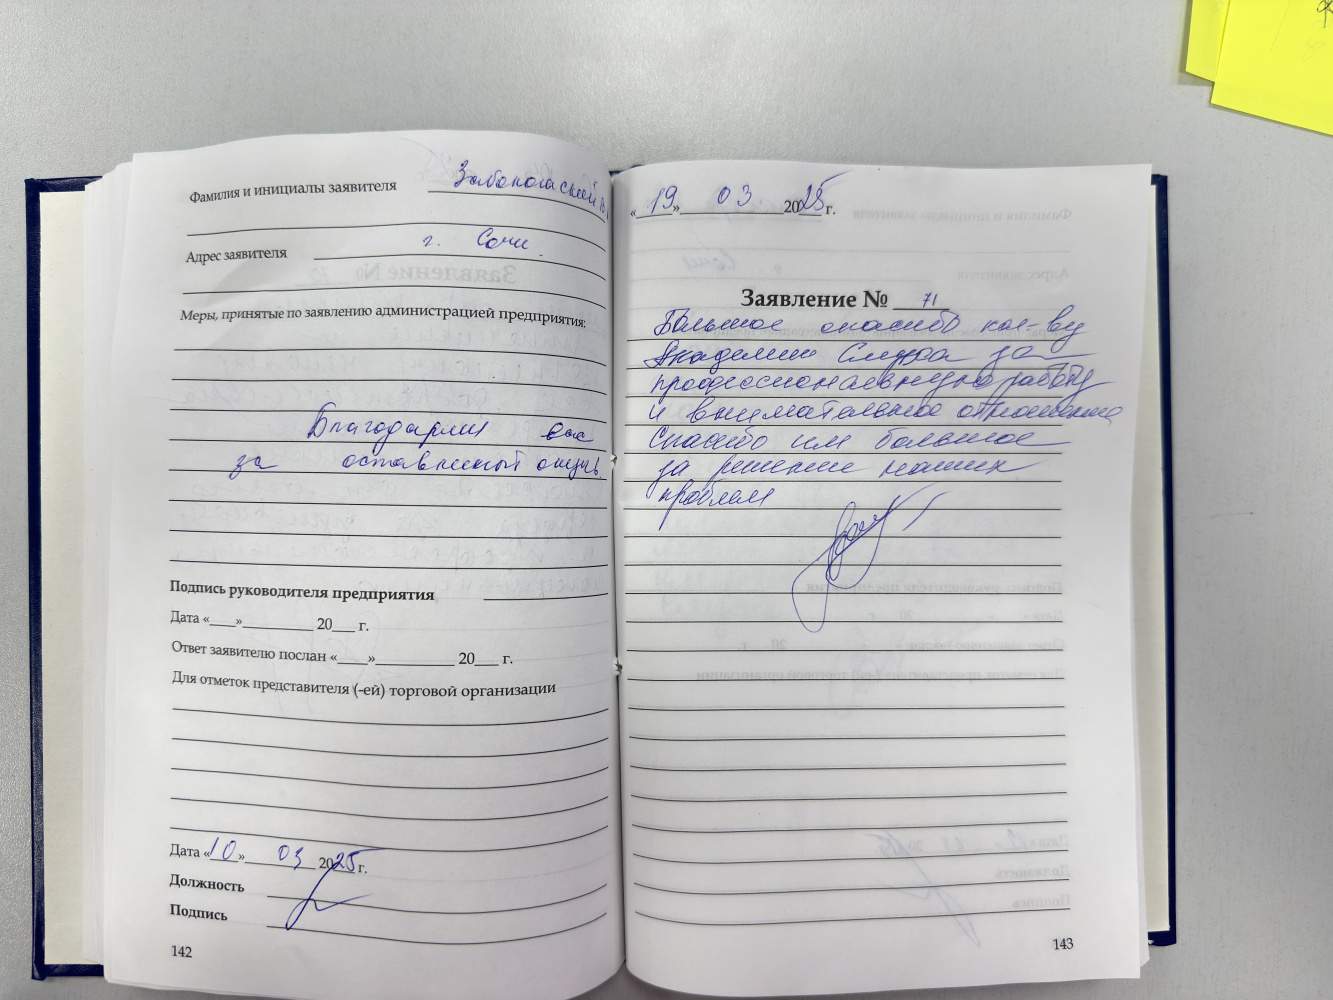 Фамилия и инициалы заявителя
Адрес заявителя г. Сочи.
Меры, принятые по заявлению администрацией предприятия:
Благодарим вас
за оставленный отзыв.
Подпись руководителя предприятия
Дата «___»_________ 20___ г.
Ответ заявителю послан «____»__________ 20___ г.
Для отметок представителя (-ей) торговой организации
Дата «10» 03 2025 г.
Должность
Подпись
142
«19» 03 2025 г.
Заявление № 71
Большое спасибо кол-ву
Академии Слуха за
профессиональную работу
и внимательное отношение
Спасибо им большое
за решение наших
проблем
143